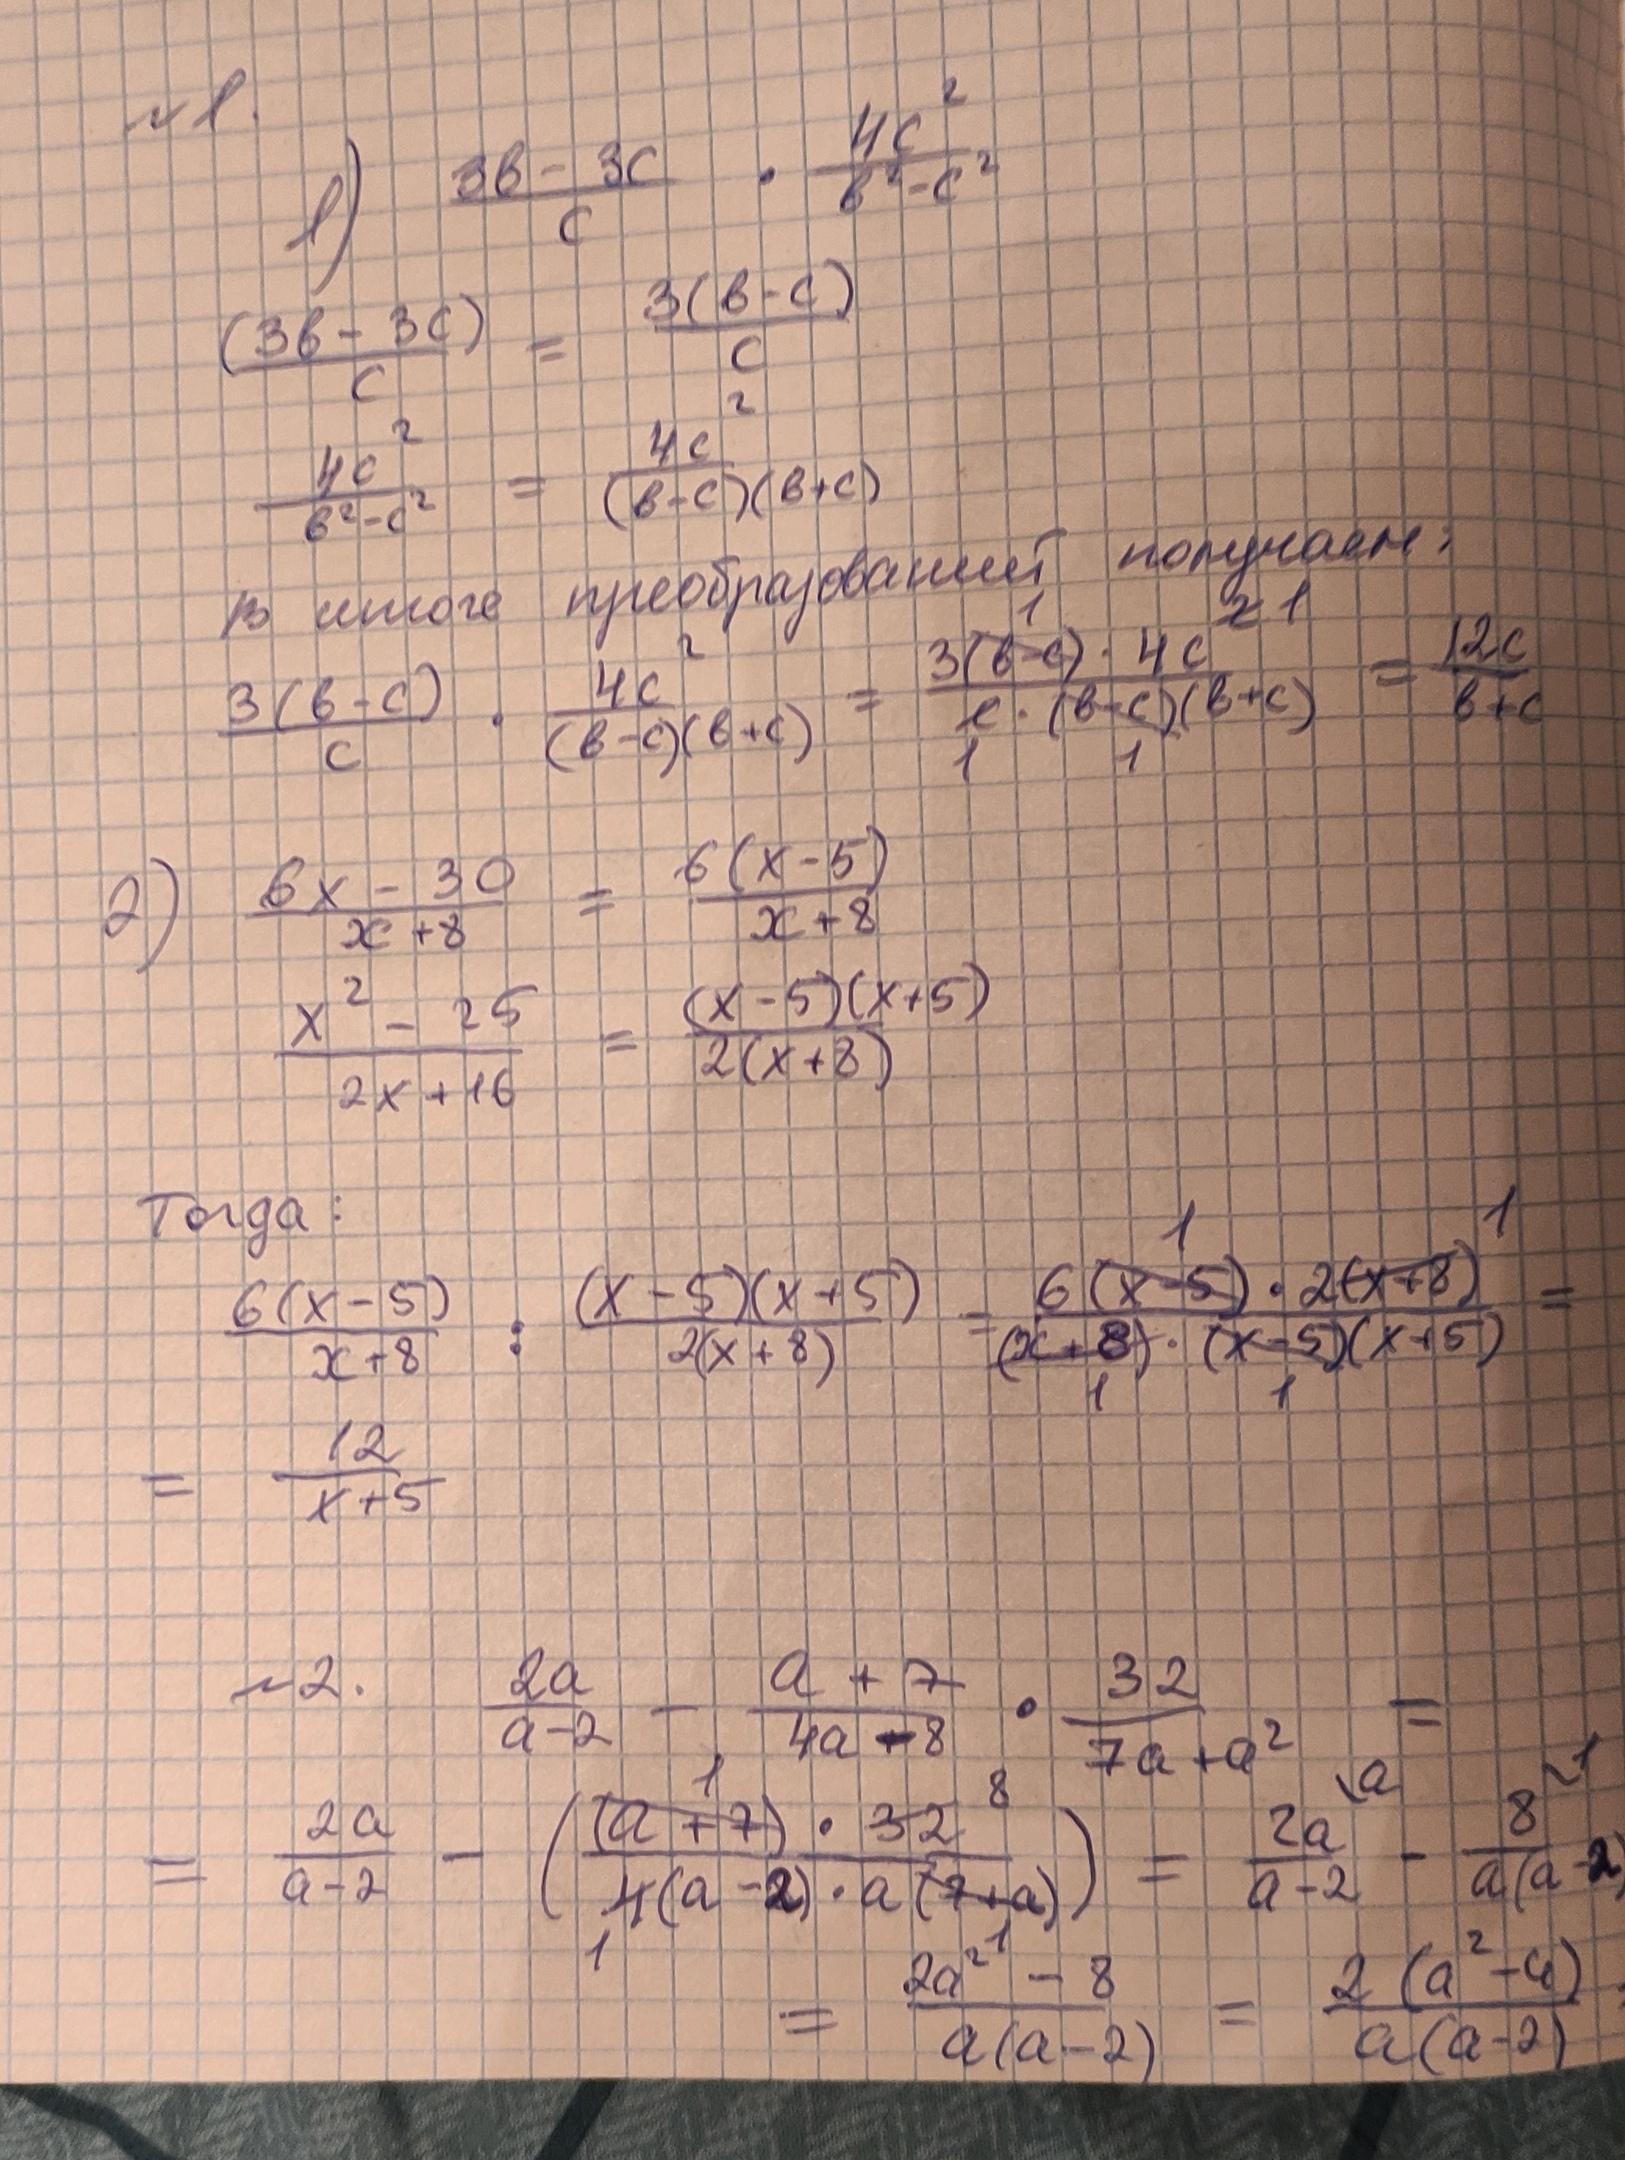 №1.
1) (3в - 3с)/с · 4с²/(в² - с²)
(3в - 3с)/с = 3(в - с)/с
4с²/(в² - с²) = 4с²/((в - с)(в + с))
В итоге преобразований получаем:
3(в - с)/с · 4с²/((в - с)(в + с)) = (3(в - с) · 4с²)/(с · (в - с)(в + с)) = 12с/(в + с)
2) (6x - 30)/(x + 8) = 6(x - 5)/(x + 8)
(x² - 25)/(2x + 16) = (x - 5)(x + 5)/(2(x + 8))
Тогда:
6(x - 5)/(x + 8) : (x - 5)(x + 5)/(2(x + 8)) = (6(x - 5) · 2(x + 8))/((x + 8) · (x - 5)(x + 5)) =
= 12/(x + 5)
№2. 2a/(a - 2) - (a + 7)/(4a - 8) · 32/(7a + a²) =
= 2a/(a - 2) - ((a + 7) · 32)/(4(a - 2) · a(7 + a)) = 2a/(a - 2) - 8/(a(a - 2))
= (2a² - 8)/(a(a - 2)) = 2(a² - 4)/(a(a - 2)) =